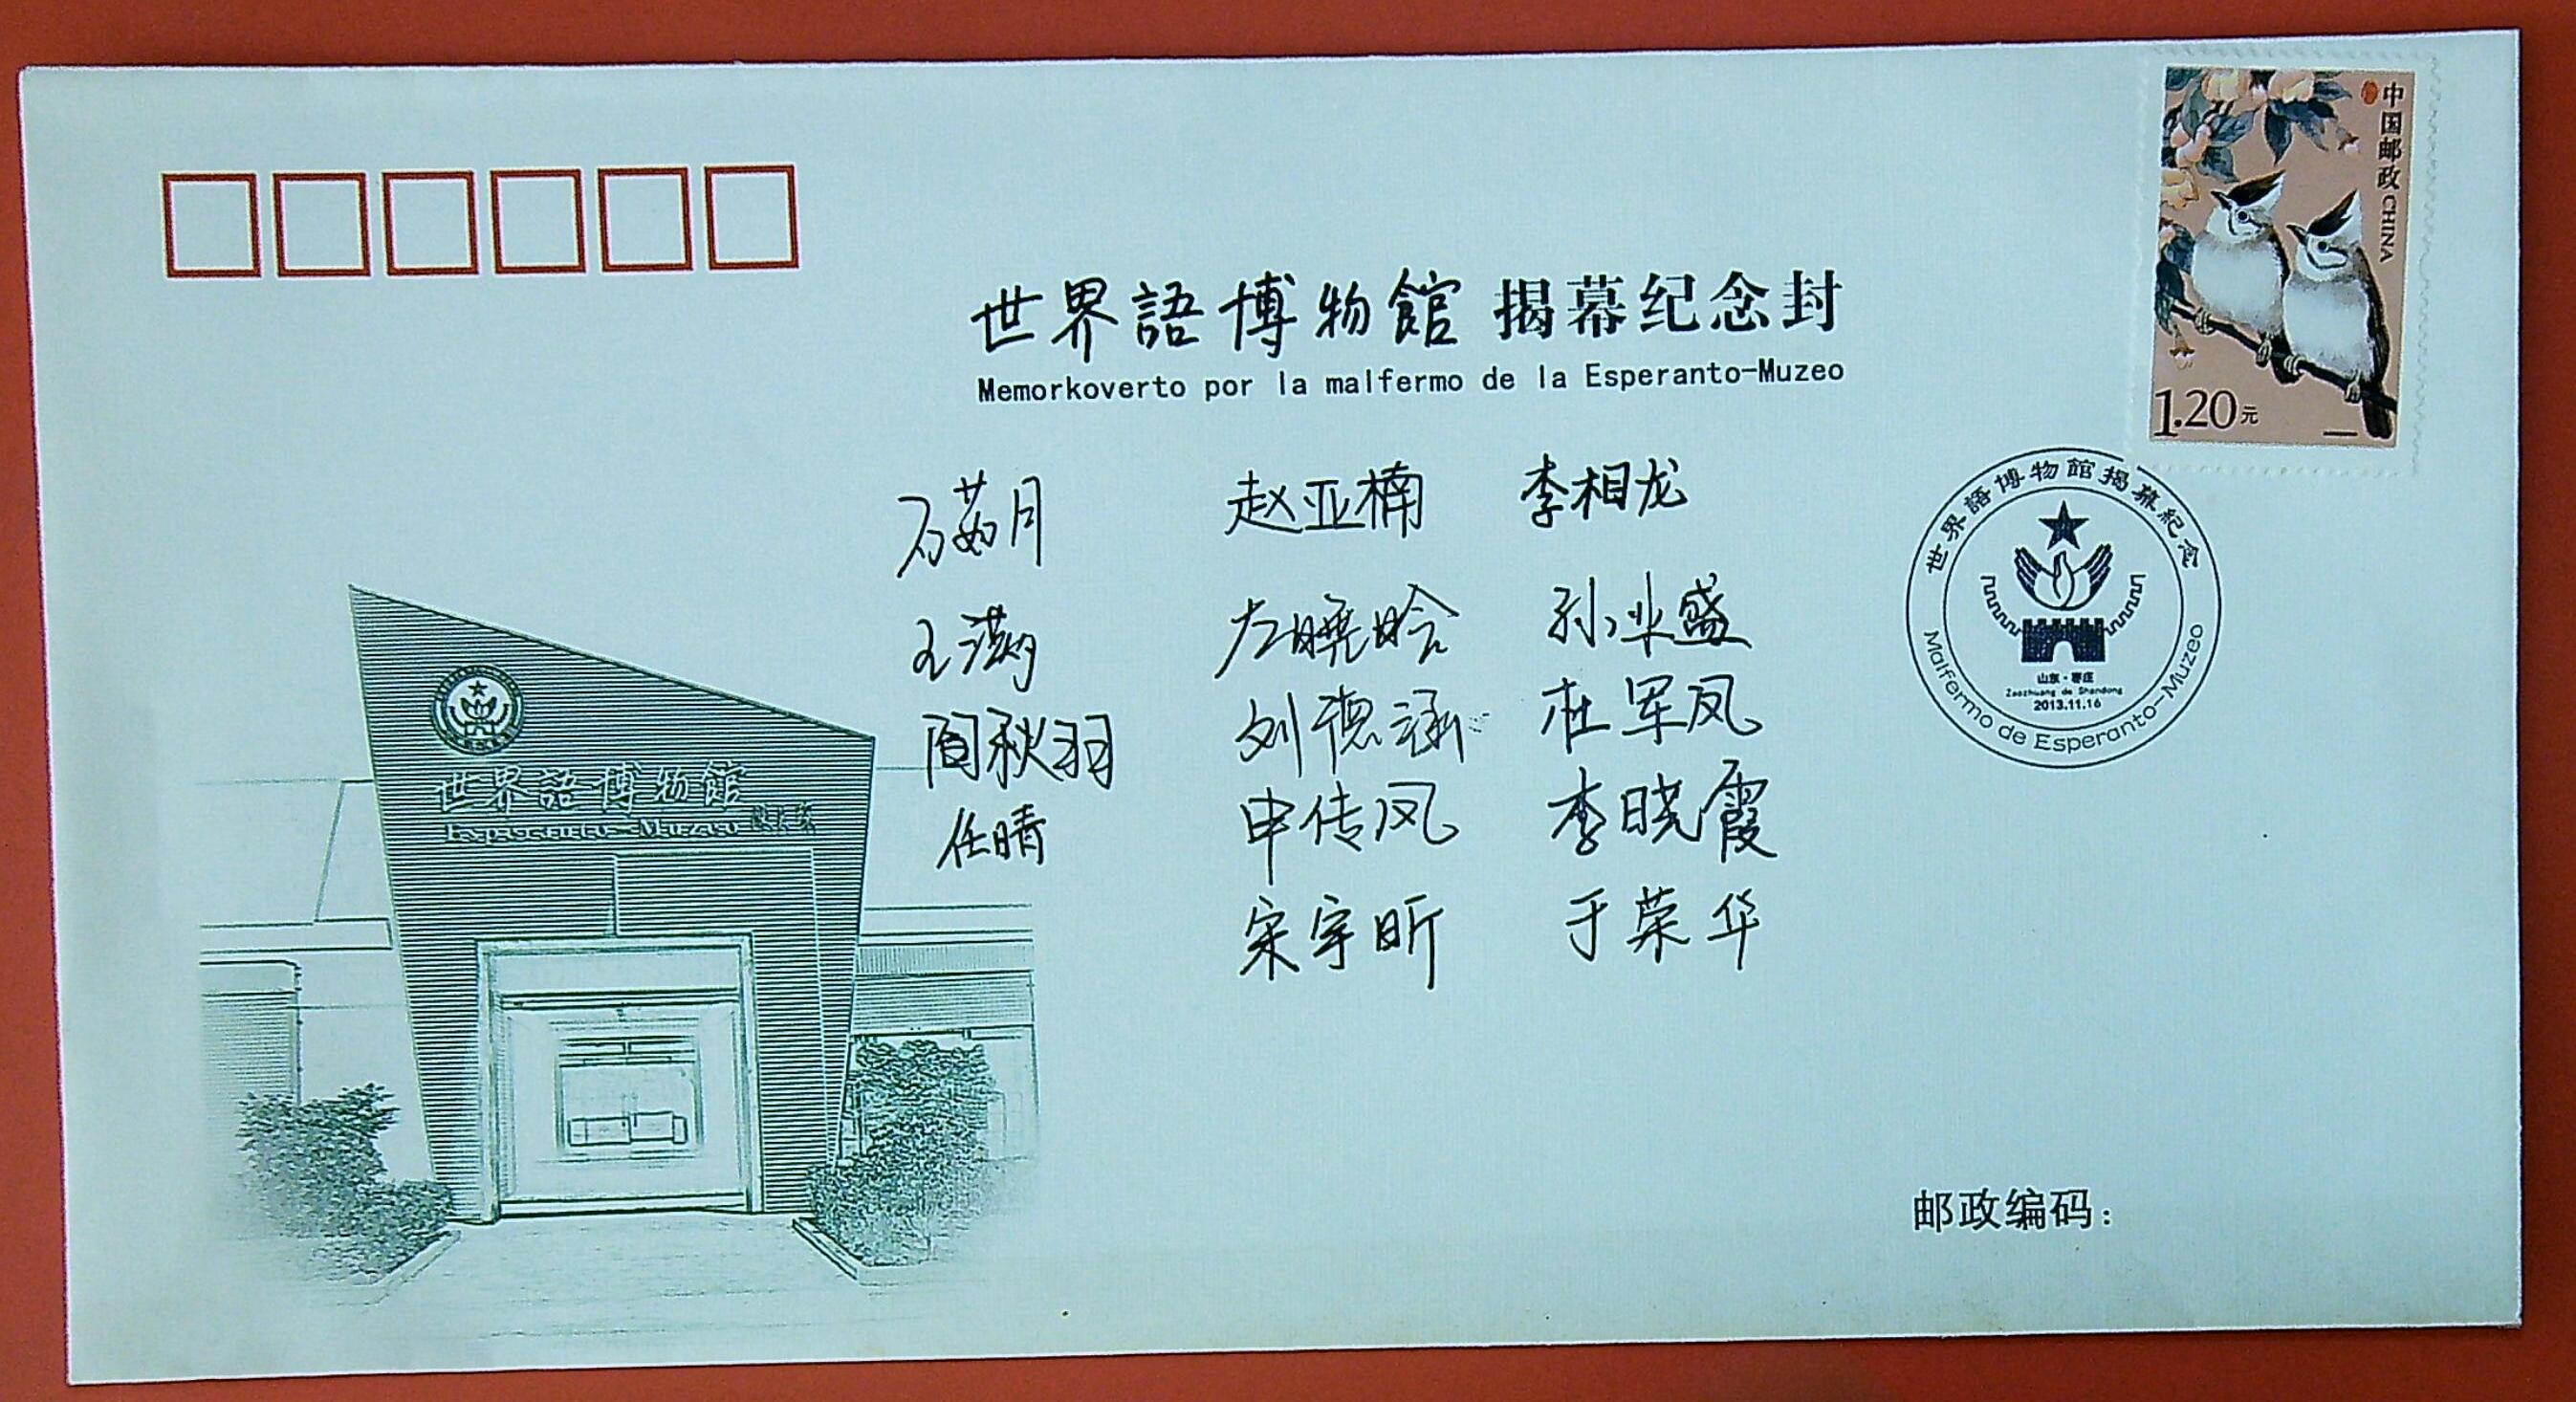 中国邮政 CHINA
1.20元
世界語博物館 揭幕纪念封
Memorkoverto por la malfermo de la Esperanto-Muzeo
石茹月 赵亚楠 李相龙
王 左晓晗 孙业盛
阎秋羽 刘德涵 杜军凤
任晴 申传凤 李晓霞
宋宇昕 于荣华
世界語博物館揭幕紀念
山东·枣庄
Zaozhuang de Shandong
2013.11.16
Malfermo de Esperanto-Muzeo
世界語博物館
Esperanto-Muzeo
邮政编码：